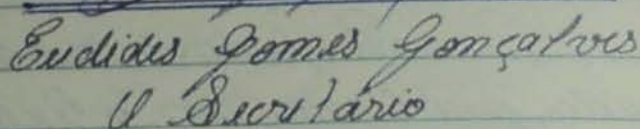 Euclides Gomes Gonçalves
O Secretário